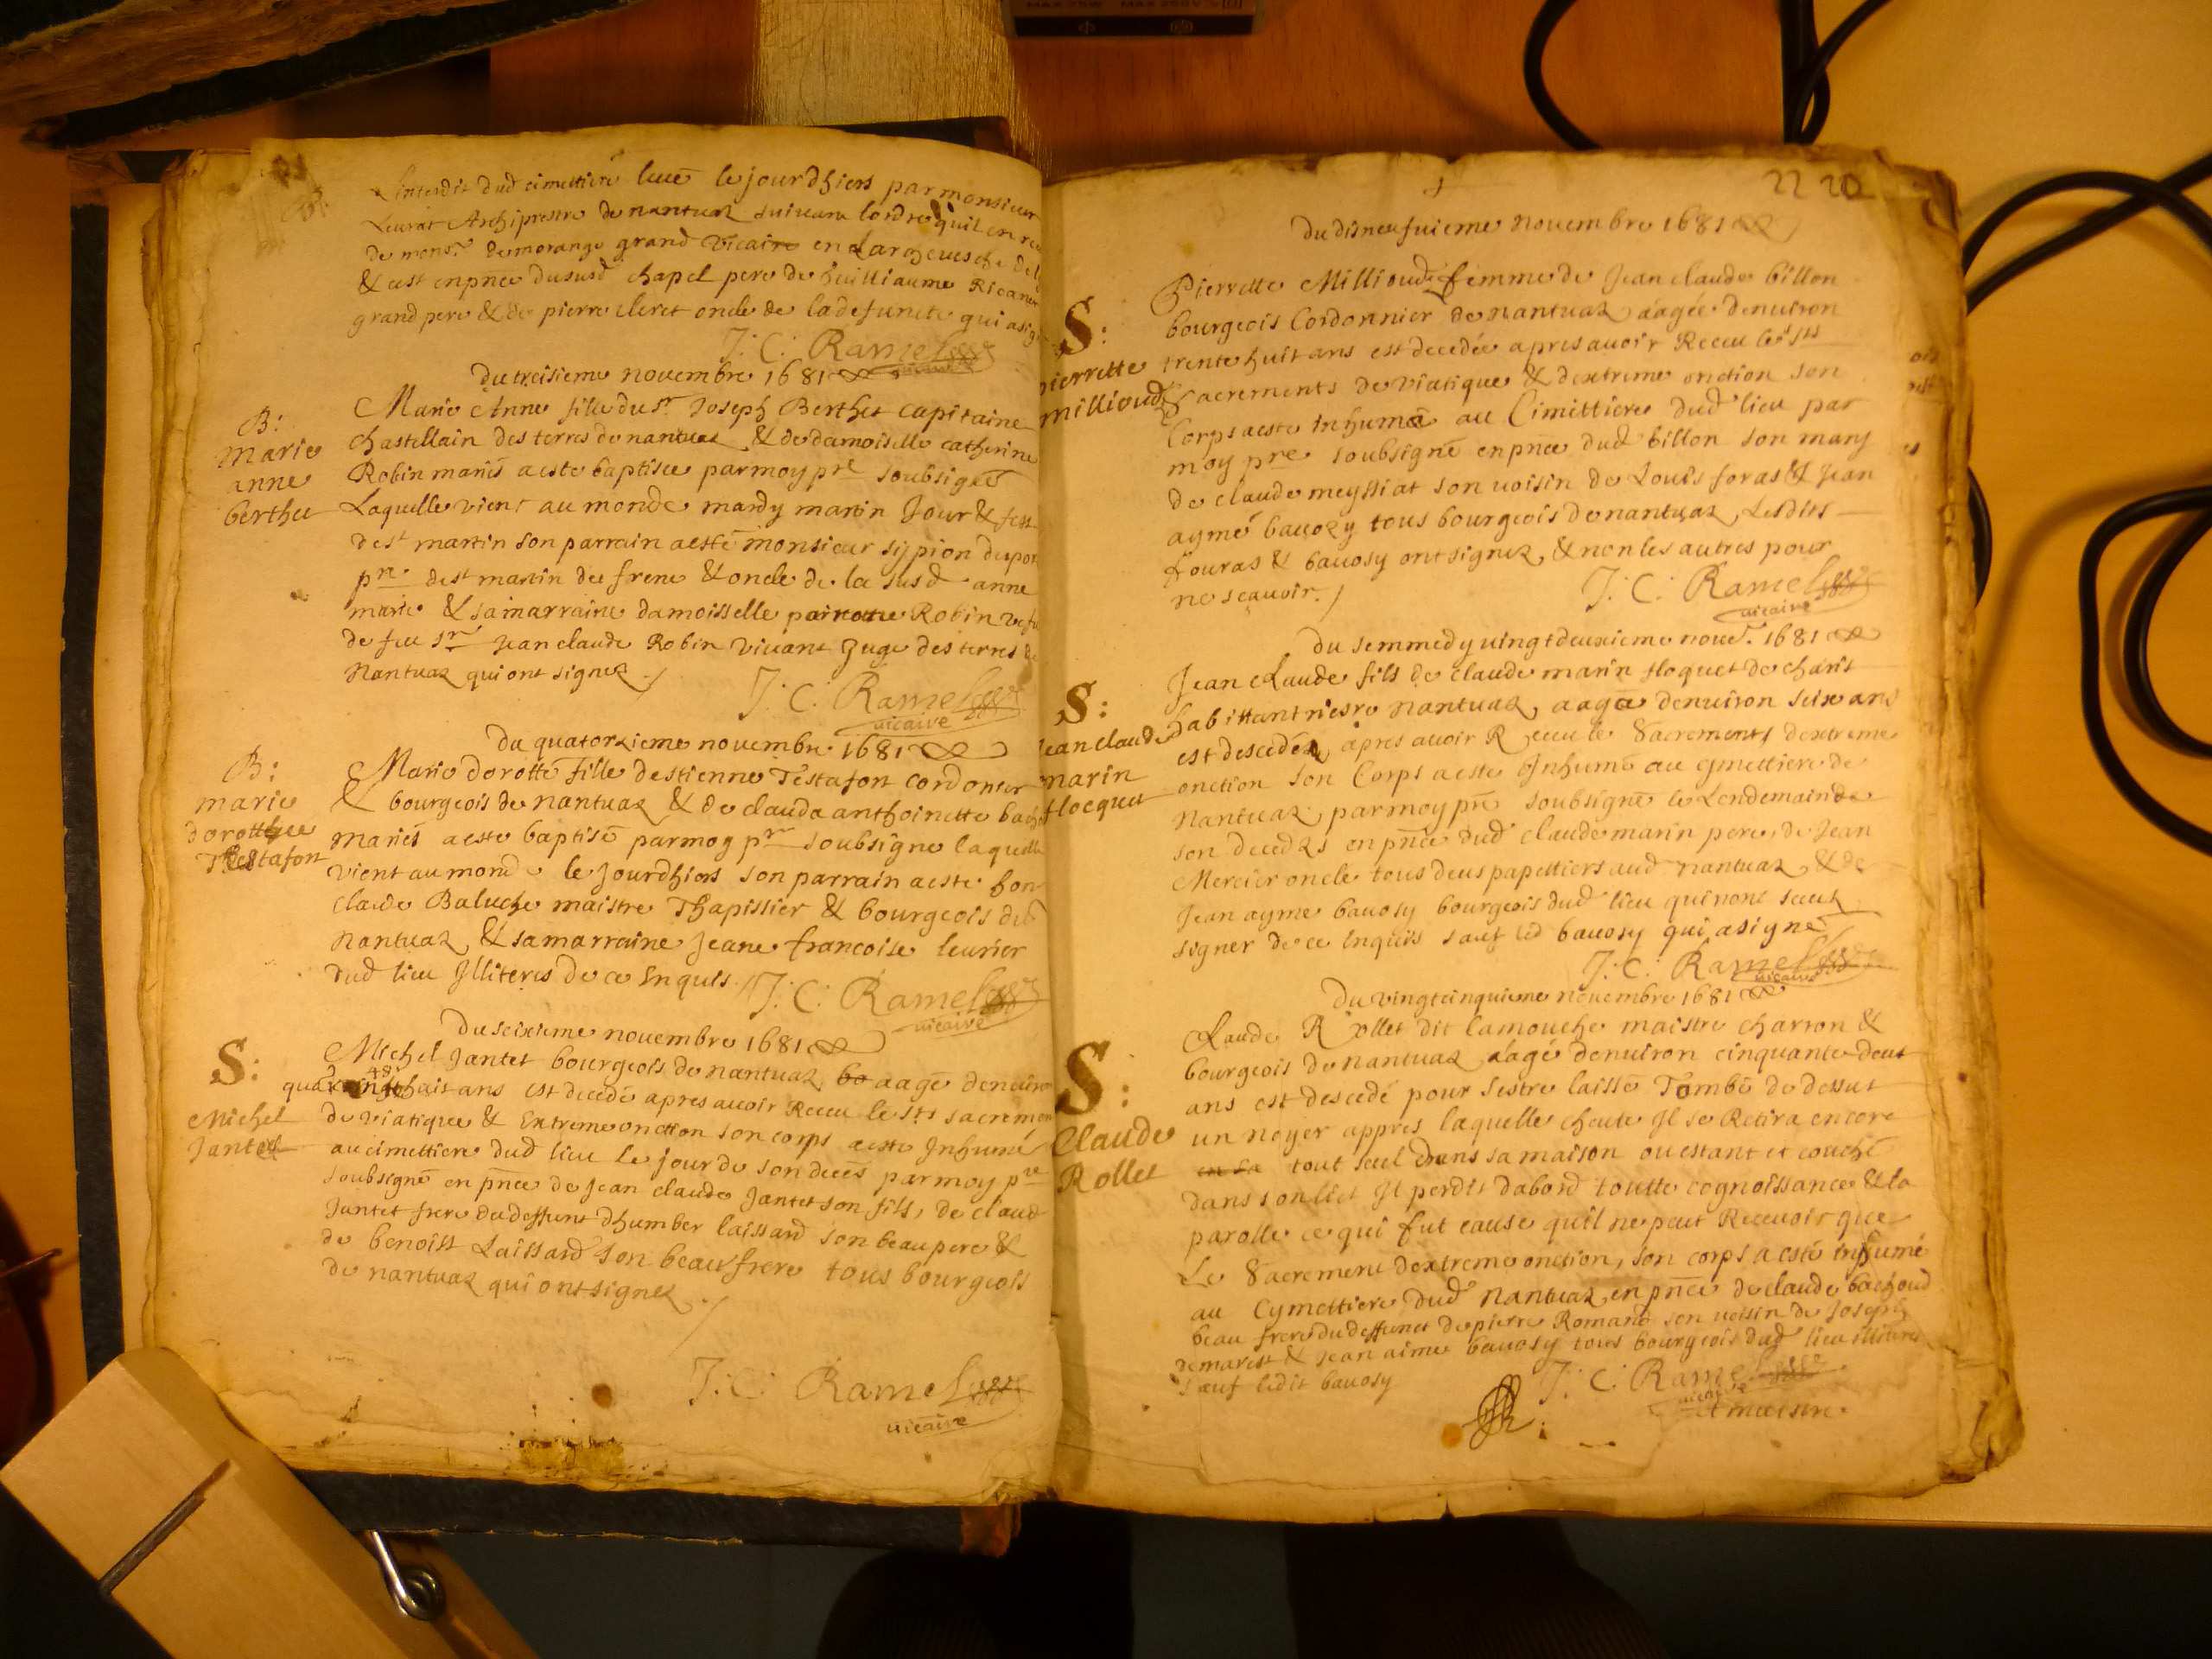 Linterdit dud cimettiere leué le jourdhiers par monsieur
Leurat Archiprestre de nantuaz suivant lordre quil en
de monsr demorange grand vicaire en Larcheuesche de
& cest enpnce dususd chapel pere de huilliaume
grand pere & de pierre cleret oncle de la defuncte qui
J: C: Ramel vicaire
du treisieme novembre 1681
B:
marie
anne
berthet
Marie Anne fille du sr Joseph Berthet capitaine
chastellain des terres de nantuaz & de damoiselle catherine
Robin mariés a este baptisee par moy pre soubsigné
Laquelle vient au monde mardy matin Jour & fest
de st martin son parrain a esté monsieur sipion
pre de st martin du frene & oncle de la susd anne
marie & sa marraine damoisselle Robin
de feu sr Jean claude Robin vivant Juge des terres de
Nantuaz qui ont signez ./
J: C: Ramel vicaire
Du quatorzieme novembre 1681
B:
marie
dorotthee
Testafort
Marie dorotté fille destienne Testafort cordonier
& bourgeois de nantuaz & de clauda anthoinette
mariés a este baptisé par moy pre soubsigne laquelle
vient au monde le Jourdhiers son parrain a este hon
claude Baluche maistre Thapissier & bourgeois dud
Nantuaz & sa marraine Jeane francoise leurier
dud lieu Jlliteres de ce Inquis ./
J: C: Ramel vicaire
Du seixieme novembre 1681
S:
Michel
Jantet
Michel Jantet bourgeois de nantuaz aagé denuiron
48
huit ans est decedé apres auoir Receu les sts sacremen
de viatique & Extreme onction son corps a este Jnhumé
au cimettiere dud lieu le jour de son deces par moy pre
soubsigné en pnce de Jean claude Jantet son fils, de claud
Jantet frere du deffunt dhumber laissard son beau pere &
de benoist Laissard son beaufrere tous bourgeois
de nantuaz qui ont signez ./
J: C: Ramel
vicaire
22 20
Du disneufuieme novembre 1681
S:
pierrette
millioud
Pierrette Millioud femme de Jean claude billon
bourgeois Cordonnier de nantuaz aagée denuiron
trente huit ans est decedée apres auoir Receu les sts
Sacrements de viatique & dextreme onction son
Corps a este inhumé au Cimittiere dud lieu par
moy pre soubsigné enpnce dud billon son mary
de claude meyssiat son uoisin de Louis foras & Jean
aymé bauozy tous bourgeois de nantuaz, Lesdits
fouras & bauosy ont signez & non les autres pour
ne scauoir ./
J: C: Ramel
vicaire
Du semmedy uingt deuxieme noue. 1681
S:
Jean claude
marin
flocquet
Jean claude fils de claude marin floquet de charit
habittant riesre nantuaz, aagé denuiron seixe ans
est descedéz apres auoir Receu le Sacrements dextreme
onction son Corps a este Jnhumé au cymettiere de
Nantuaz par moy pre soubsigné le Lendemain de
son decedzs en pnce dud claude marin pere, de Jean
Mercier oncle tous deus papettiers aud nantuaz & de
Jean ayme bauosy bourgeois dud lieu qui nont sceut
signer de ce inquis sauf led bauosy qui a signé
J: C: Ramel
vicaire
Du vingtcinquieme novembre 1681
S:
Claude
Rollet
Claude Rollet dit lamouche maistre charron &
bourgeois de nantuaz aagé denuiron cinquante deut
ans est descedé pour sestre laissé Tombé de dessut
un noyer appres laquelle cheute Jl se Retira encore
en sa tout seul dans sa maison ou estant et couché
dans son lict Jl perdit dabord toutte cognoissance & la
parolle ce qui fut cause quil ne peut Receuoir que
Le Sacrement dextreme onction, son corps a esté inhumé
au Cymettiere dud Nantuaz en pnce de claude bachoud
beau frere du deffunct de pierre Romand son uoisin de Joseph
demarest & Jean aimé bauosy tous bourgeois dud lieu illiteres
sauf ledit bauosy
J: C: Ramel
vicaire